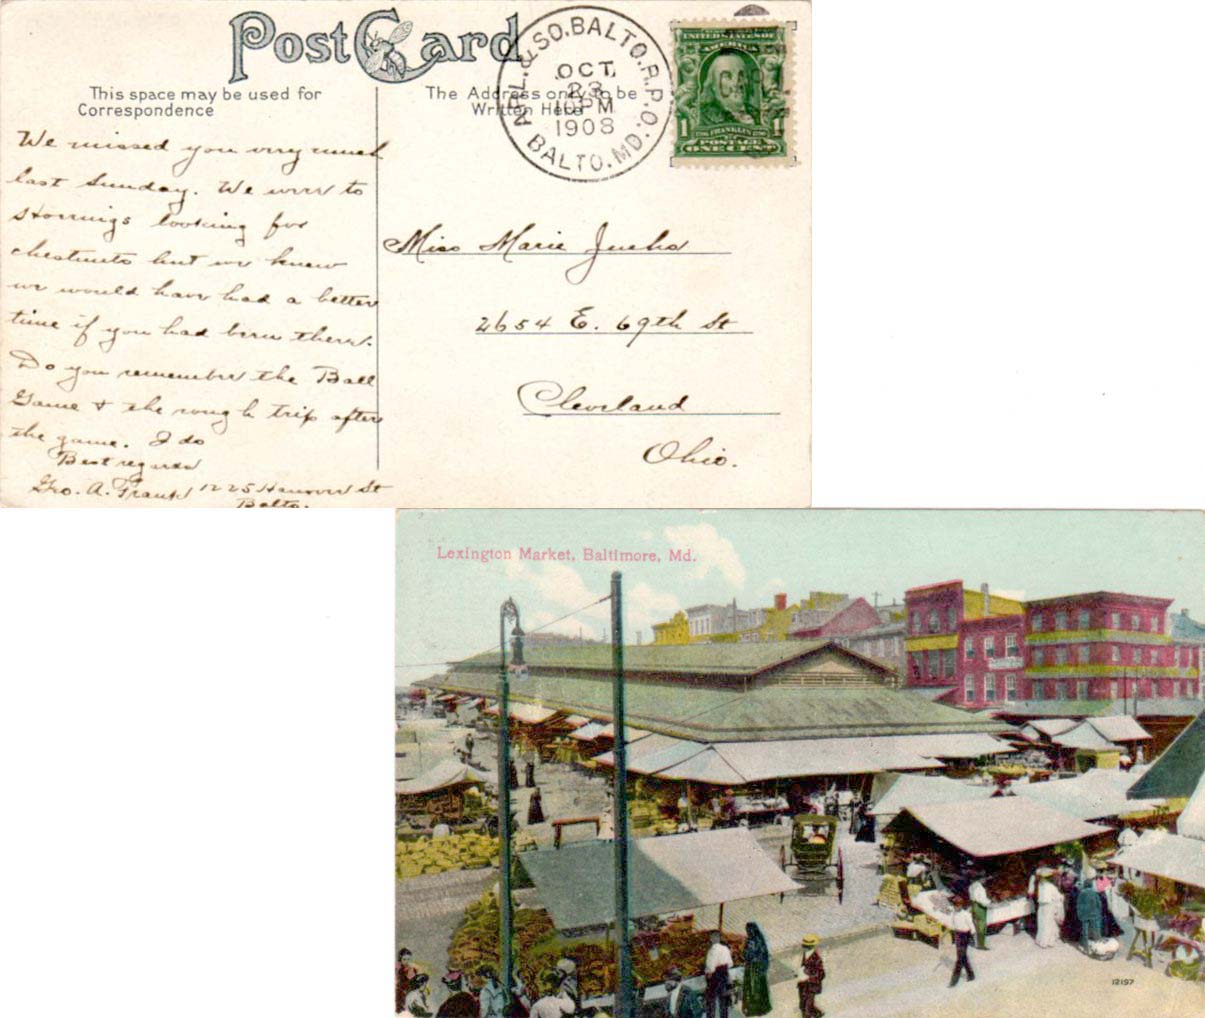 Post Card
This space may be used for
Correspondence
The Address only to be
Written Here
APL. & SO. BALTO. R.P.O.
OCT.
23
10 PM
1908
BALTO. MD.
UNITED STATES OF
AMERICA
1 1706 FRANKLIN 1790 1
POSTAGE
ONE CENT
We missed you very much
last Sunday. We went to
looking for
chestnuts but we knew
we would have had a better
time if you had been there.
Do you remember the Ball
Game & the rough trip after
the game. I do
Best regards
Geo. A. 1225 Hanover St
Balto.
Miss Marie
2654 E. 69th St
Cleveland
Ohio.
Lexington Market, Baltimore, Md.
12197